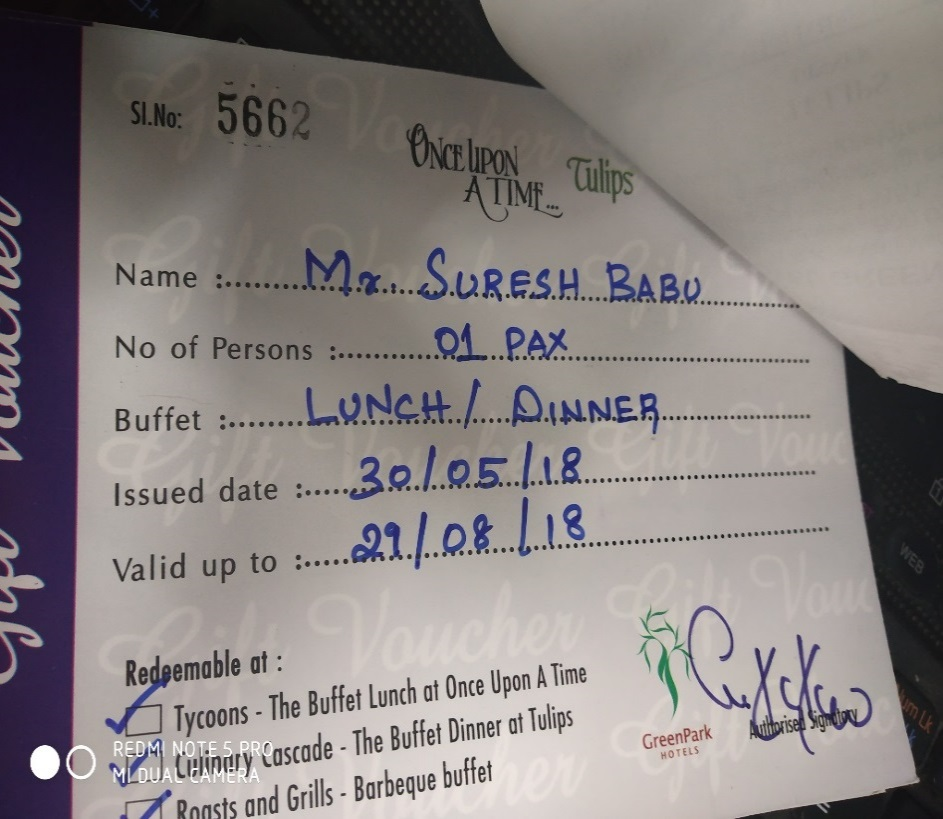 Sl.No: 5662
ONCE UPON
A TIME...
Tulips
Name :..........Mr. SURESH BABU
No of Persons :..........01 PAX
Buffet :..........LUNCH / DINNER
Issued date :..........30/05/18
Valid up to :..........29/08/18
Redeemable at :
Tycoons - The Buffet Lunch at Once Upon A Time
Culinary Cascade - The Buffet Dinner at Tulips
Roasts and Grills - Barbeque buffet
GreenPark
HOTELS
Authorised Signatory
Gift Voucher
REDMI NOTE 5 PRO
MI DUAL CAMERA
WEB